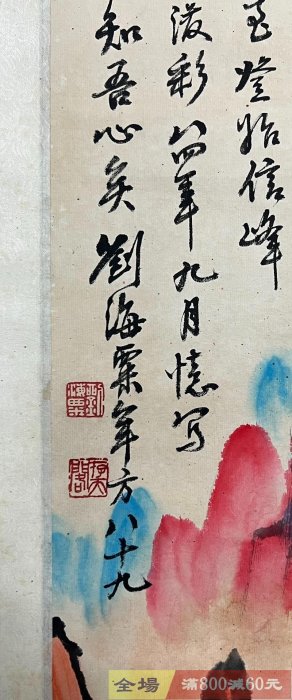 登始信峰
泼彩 八四年九月憶写
知吾心矣 劉海粟年方八十九
劉海粟
全場 滿800減60元